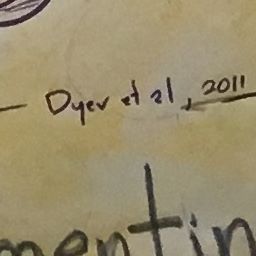 — Dyer et al, 2011
mentin